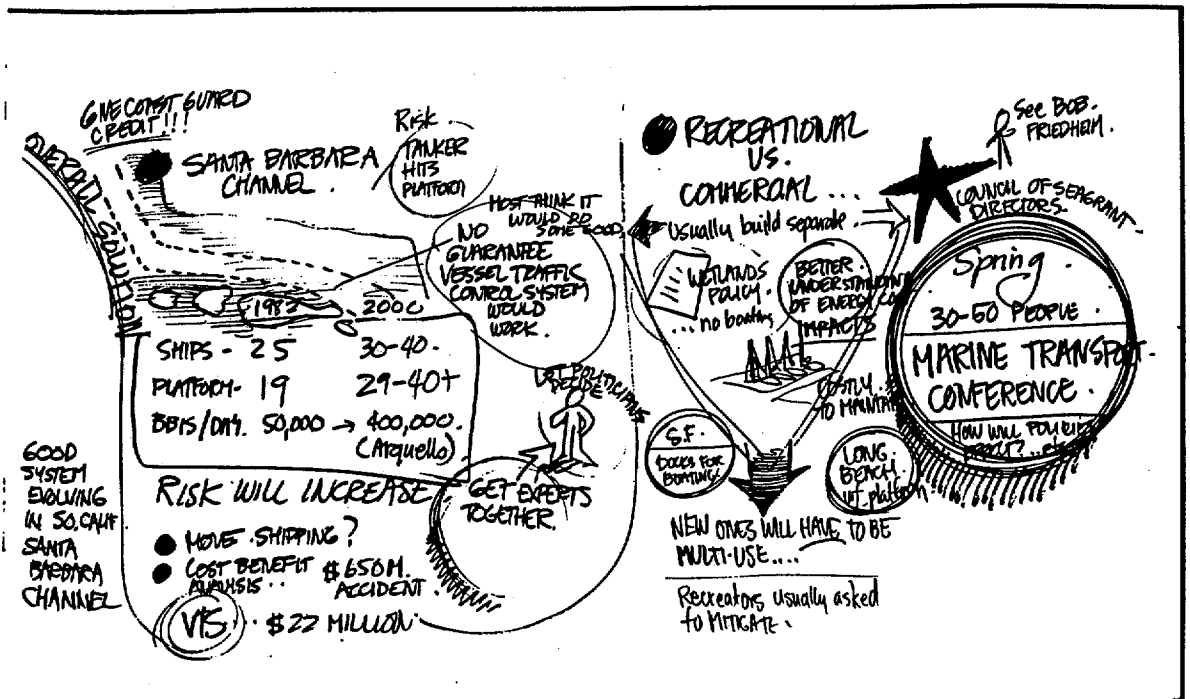 GIVE COAST GUARD
CREDIT!!!
OVERALL SOLUTION
SANTA BARBARA
CHANNEL.
Risk.
TANKER
HITS
PLATFORM
MOST THINK IT
WOULD DO
SOME GOOD.
NO
GUARANTEE
VESSEL TRAFFIC
CONTROL SYSTEM
WOULD
WORK.
1982 2000
SHIPS - 25 30-40.
PLATFORM - 19 29-40+
BBLS/DAY. 50,000 → 400,000.
(Arquello)
GOOD
SYSTEM
EVOLVING
IN SO. CALIF
SANTA
BARBARA
CHANNEL
RISK WILL INCREASE
MOVE SHIPPING?
COST BENEFIT
ANALYSIS.. $650M.
ACCIDENT.
VTS .. $22 MILLION.
LET POLITICIANS
DECIDE
GET EXPERTS
TOGETHER.
RECREATIONAL
VS.
COMMERCIAL ...
Usually build separate.
WETLANDS
POLICY.
... no boating
BETTER
UNDERSTANDING
OF ENERGY
IMPACTS
COSTLY
TO MAINTAIN
S.F.
DOCKS FOR
BOATING
LONG
BEACH
NEW ONES WILL HAVE TO BE
MULTI-USE....
Recreators usually asked
to MITIGATE.
See BOB.
FRIEDHEIM.
COUNCIL OF SEAGRANT
DIRECTORS.
Spring.
30-50 PEOPLE.
MARINE TRANSPORT.
CONFERENCE.
HOW WILL POLICIES